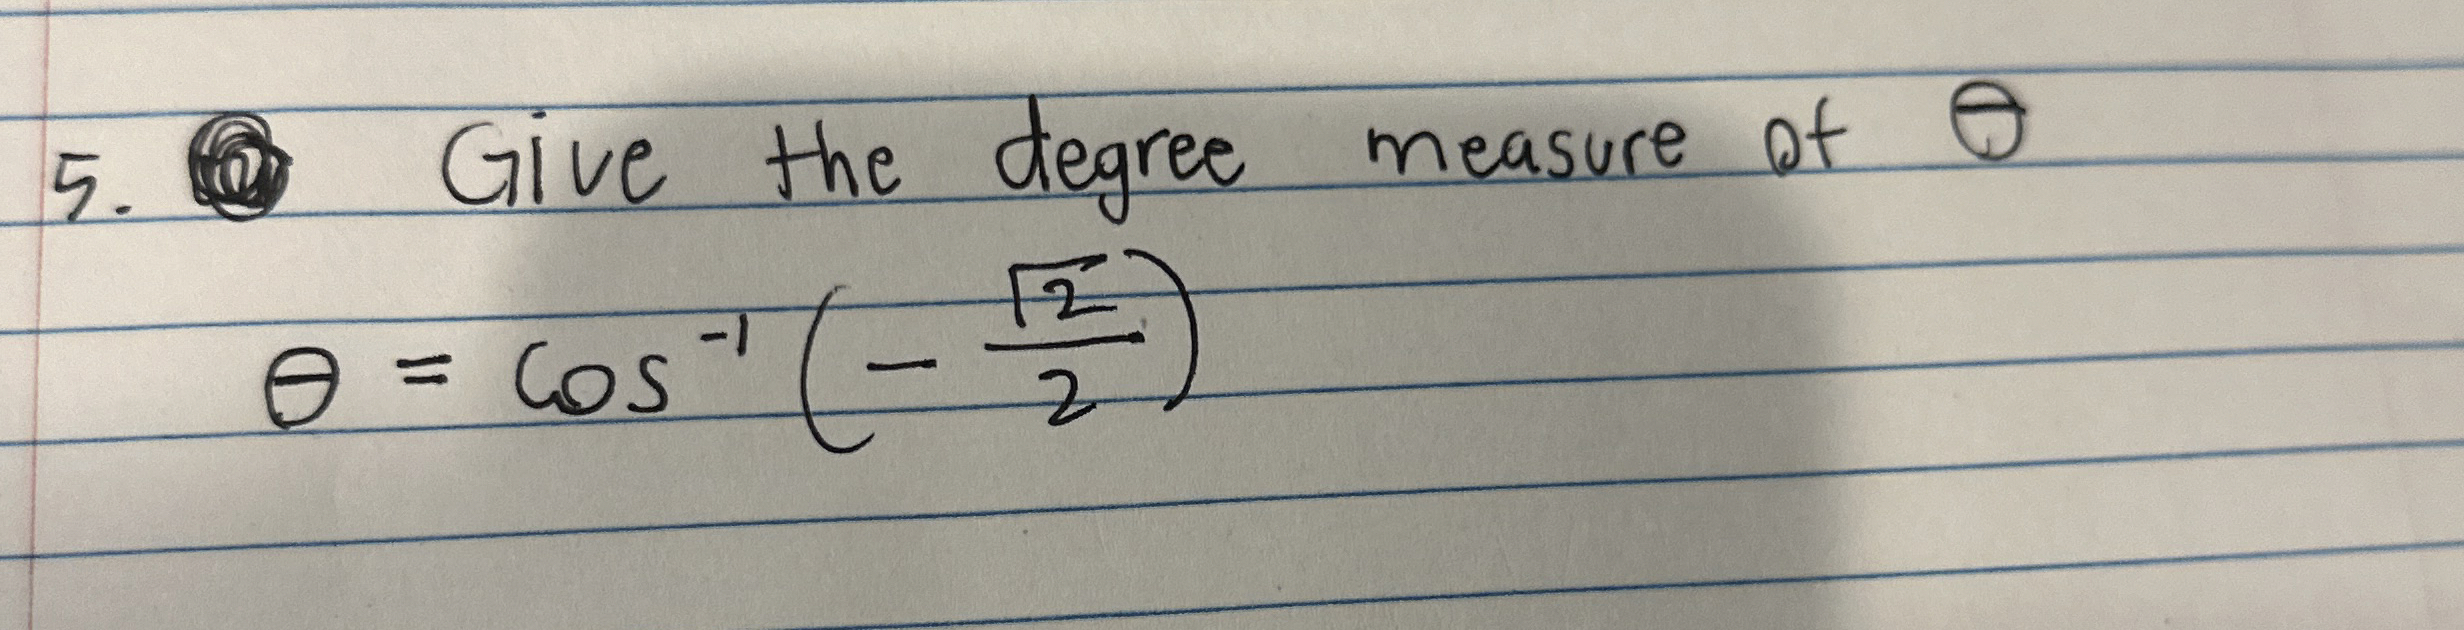 5. Give the degree measure of θ
θ = cos⁻¹ (- √2/2)